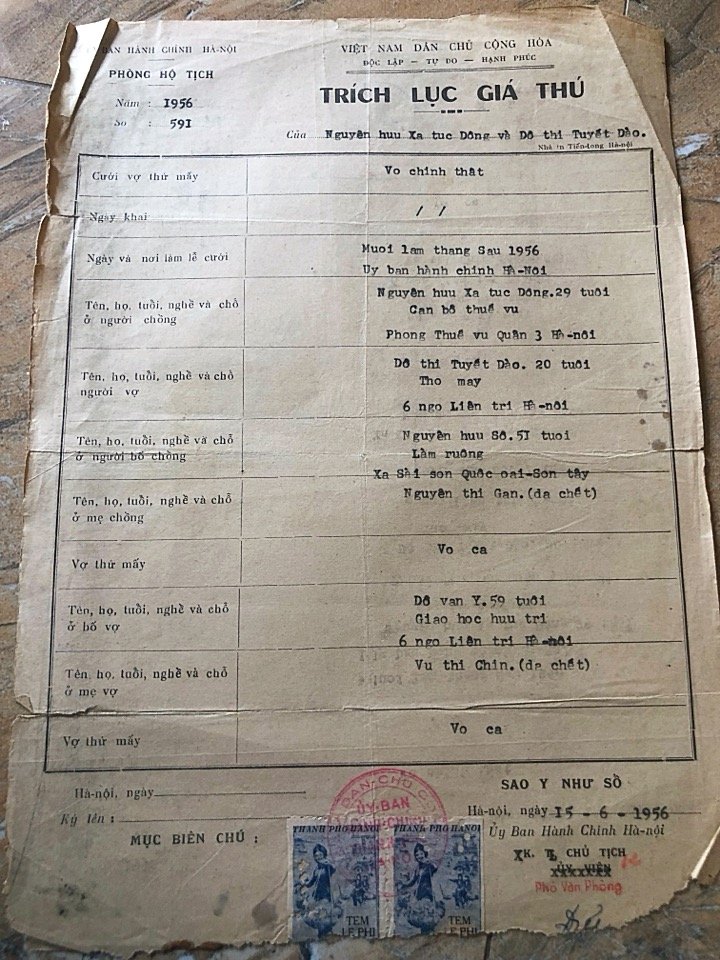 BAN HÀNH CHÍNH HÀ-NỘI
PHÒNG HỘ TỊCH
Năm : 1956
Số : 591
VIỆT NAM DÂN CHỦ CỘNG HÒA
ĐỘC LẬP — TỰ DO — HẠNH PHÚC
TRÍCH LỤC GIÁ THÚ
Của Nguyên huu Xa tuc Dông và Dô thi Tuyết Dào.
Nhà in Tiến-long Hà-nội
Cưới vợ thứ mấy
Vo chinh thât
Ngày khai
/ /
Ngày và nơi làm lễ cưới
Muoi lam thang Sau 1956
Uy ban hành chinh Hà-Nôi
Tên, họ, tuổi, nghề và chỗ
ở người chồng
Nguyên huu Xa tuc Dông.29 tuôi
Can bô thuế vu
Phong Thuế vu Quân 3 Hà-nôi
Tên, họ, tuổi, nghề và chỗ
người vợ
Dô thi Tuyết Dào. 20 tuôi
Tho may
6 ngo Liên tri Hà-nôi
Tên, họ, tuổi, nghề và chỗ
ở người bố chồng
Nguyên huu Sô.51 tuoi
Làm ruông
Xa Sài son Quôc oai-Son tây
Tên, họ, tuổi, nghề và chỗ
ở mẹ chồng
Nguyên thi Gan.(da chết)
Vợ thứ mấy
Vo ca
Tên, họ, tuổi, nghề và chỗ
ở bố vợ
Dô van Y.59 tuôi
Giao hoc huu tri
6 ngo Liên tri Hà-nôi
Tên, họ, tuổi, nghề và chỗ
ở mẹ vợ
Vu thi Chin.(da chết)
Vợ thứ mấy
Vo ca
Hà-nội, ngày
Ký tên :
MỤC BIÊN CHÚ :
SAO Y NHƯ SỔ
Hà-nội, ngày 15-6-1956
Ủy Ban Hành Chính Hà-nội
K. T. CHỦ TỊCH
ỦY VIÊN
Phó Văn Phòng
ỦY-BAN
THÀNH PHỐ HÀNỘI
TEM
LỆ PHÍ
THÀNH PHỐ HÀNỘI
TEM
LỆ PHÍ